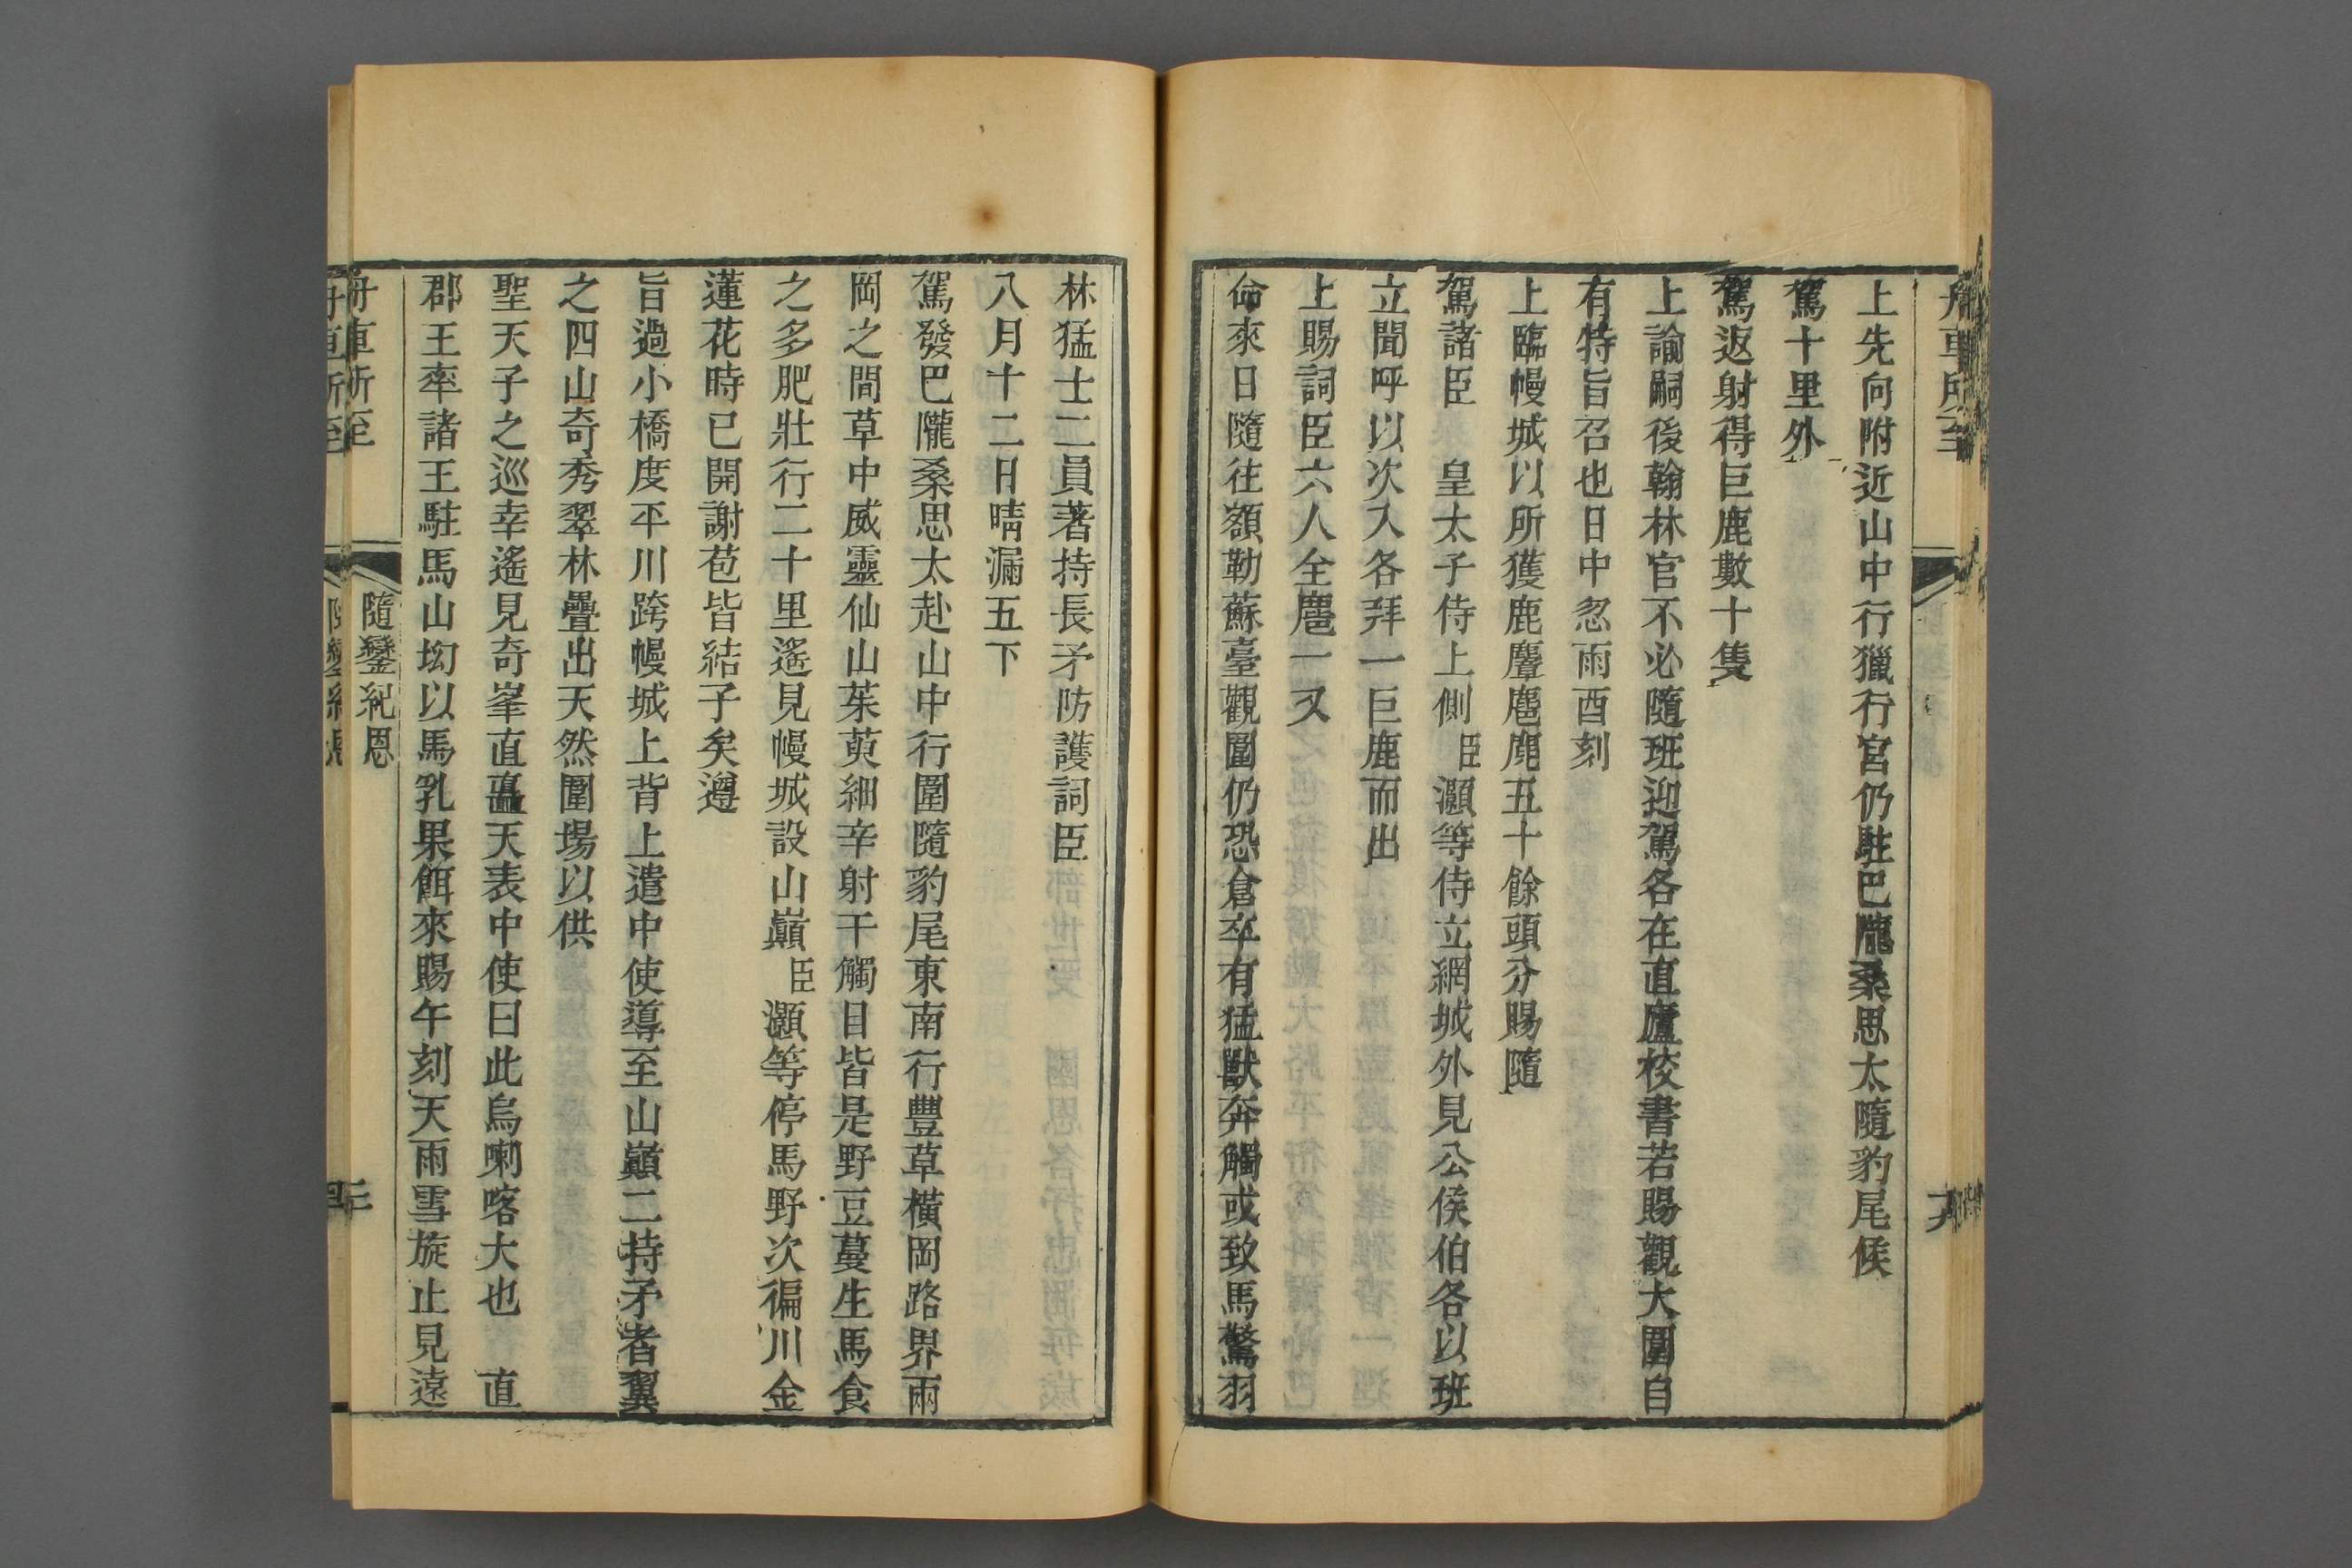 舟車所至
上先向附近山中行獵行宮仍駐巴隴桑思太隨豹尾候
駕十里外
駕返射得巨鹿數十隻
上諭嗣後翰林官不必隨班迎駕各在直廬校書若賜觀大圍自
有特旨召也日中忽雨酉刻
上臨幔城以所獲鹿麞麅麃五十餘頭分賜隨
駕諸臣　皇太子侍上側臣灝等侍立網城外見公侯伯各以班
立聞呼以次入各拜一巨鹿而出
上賜詞臣六人全麅一又
命來日隨往額勒蘇臺觀圍仍恐倉卒有猛獸奔觸或致馬驚羽
林猛士二員著持長矛防護詞臣
八月十二日晴漏五下
駕發巴隴桑思太赴山中行圍隨豹尾東南行豐草橫岡路界兩
岡之間草中威靈仙山茱萸細辛射干觸目皆是野豆蔓生馬食
之多肥壯行二十里遙見幔城設山巔臣灝等停馬野次徧川金
蓮花時已開謝苞皆結子矣遵
旨過小橋度平川跨幔城上背上遣中使導至山巔二持矛者翼
之四山奇秀翠林疊出天然圍場以供
聖天子之巡幸遙見奇峯直矗天表中使曰此烏喇喀大也　直
郡王率諸王駐馬山坳以馬乳果餌來賜午刻天雨雪旋止見遠
舟車所至
隨鑾紀恩